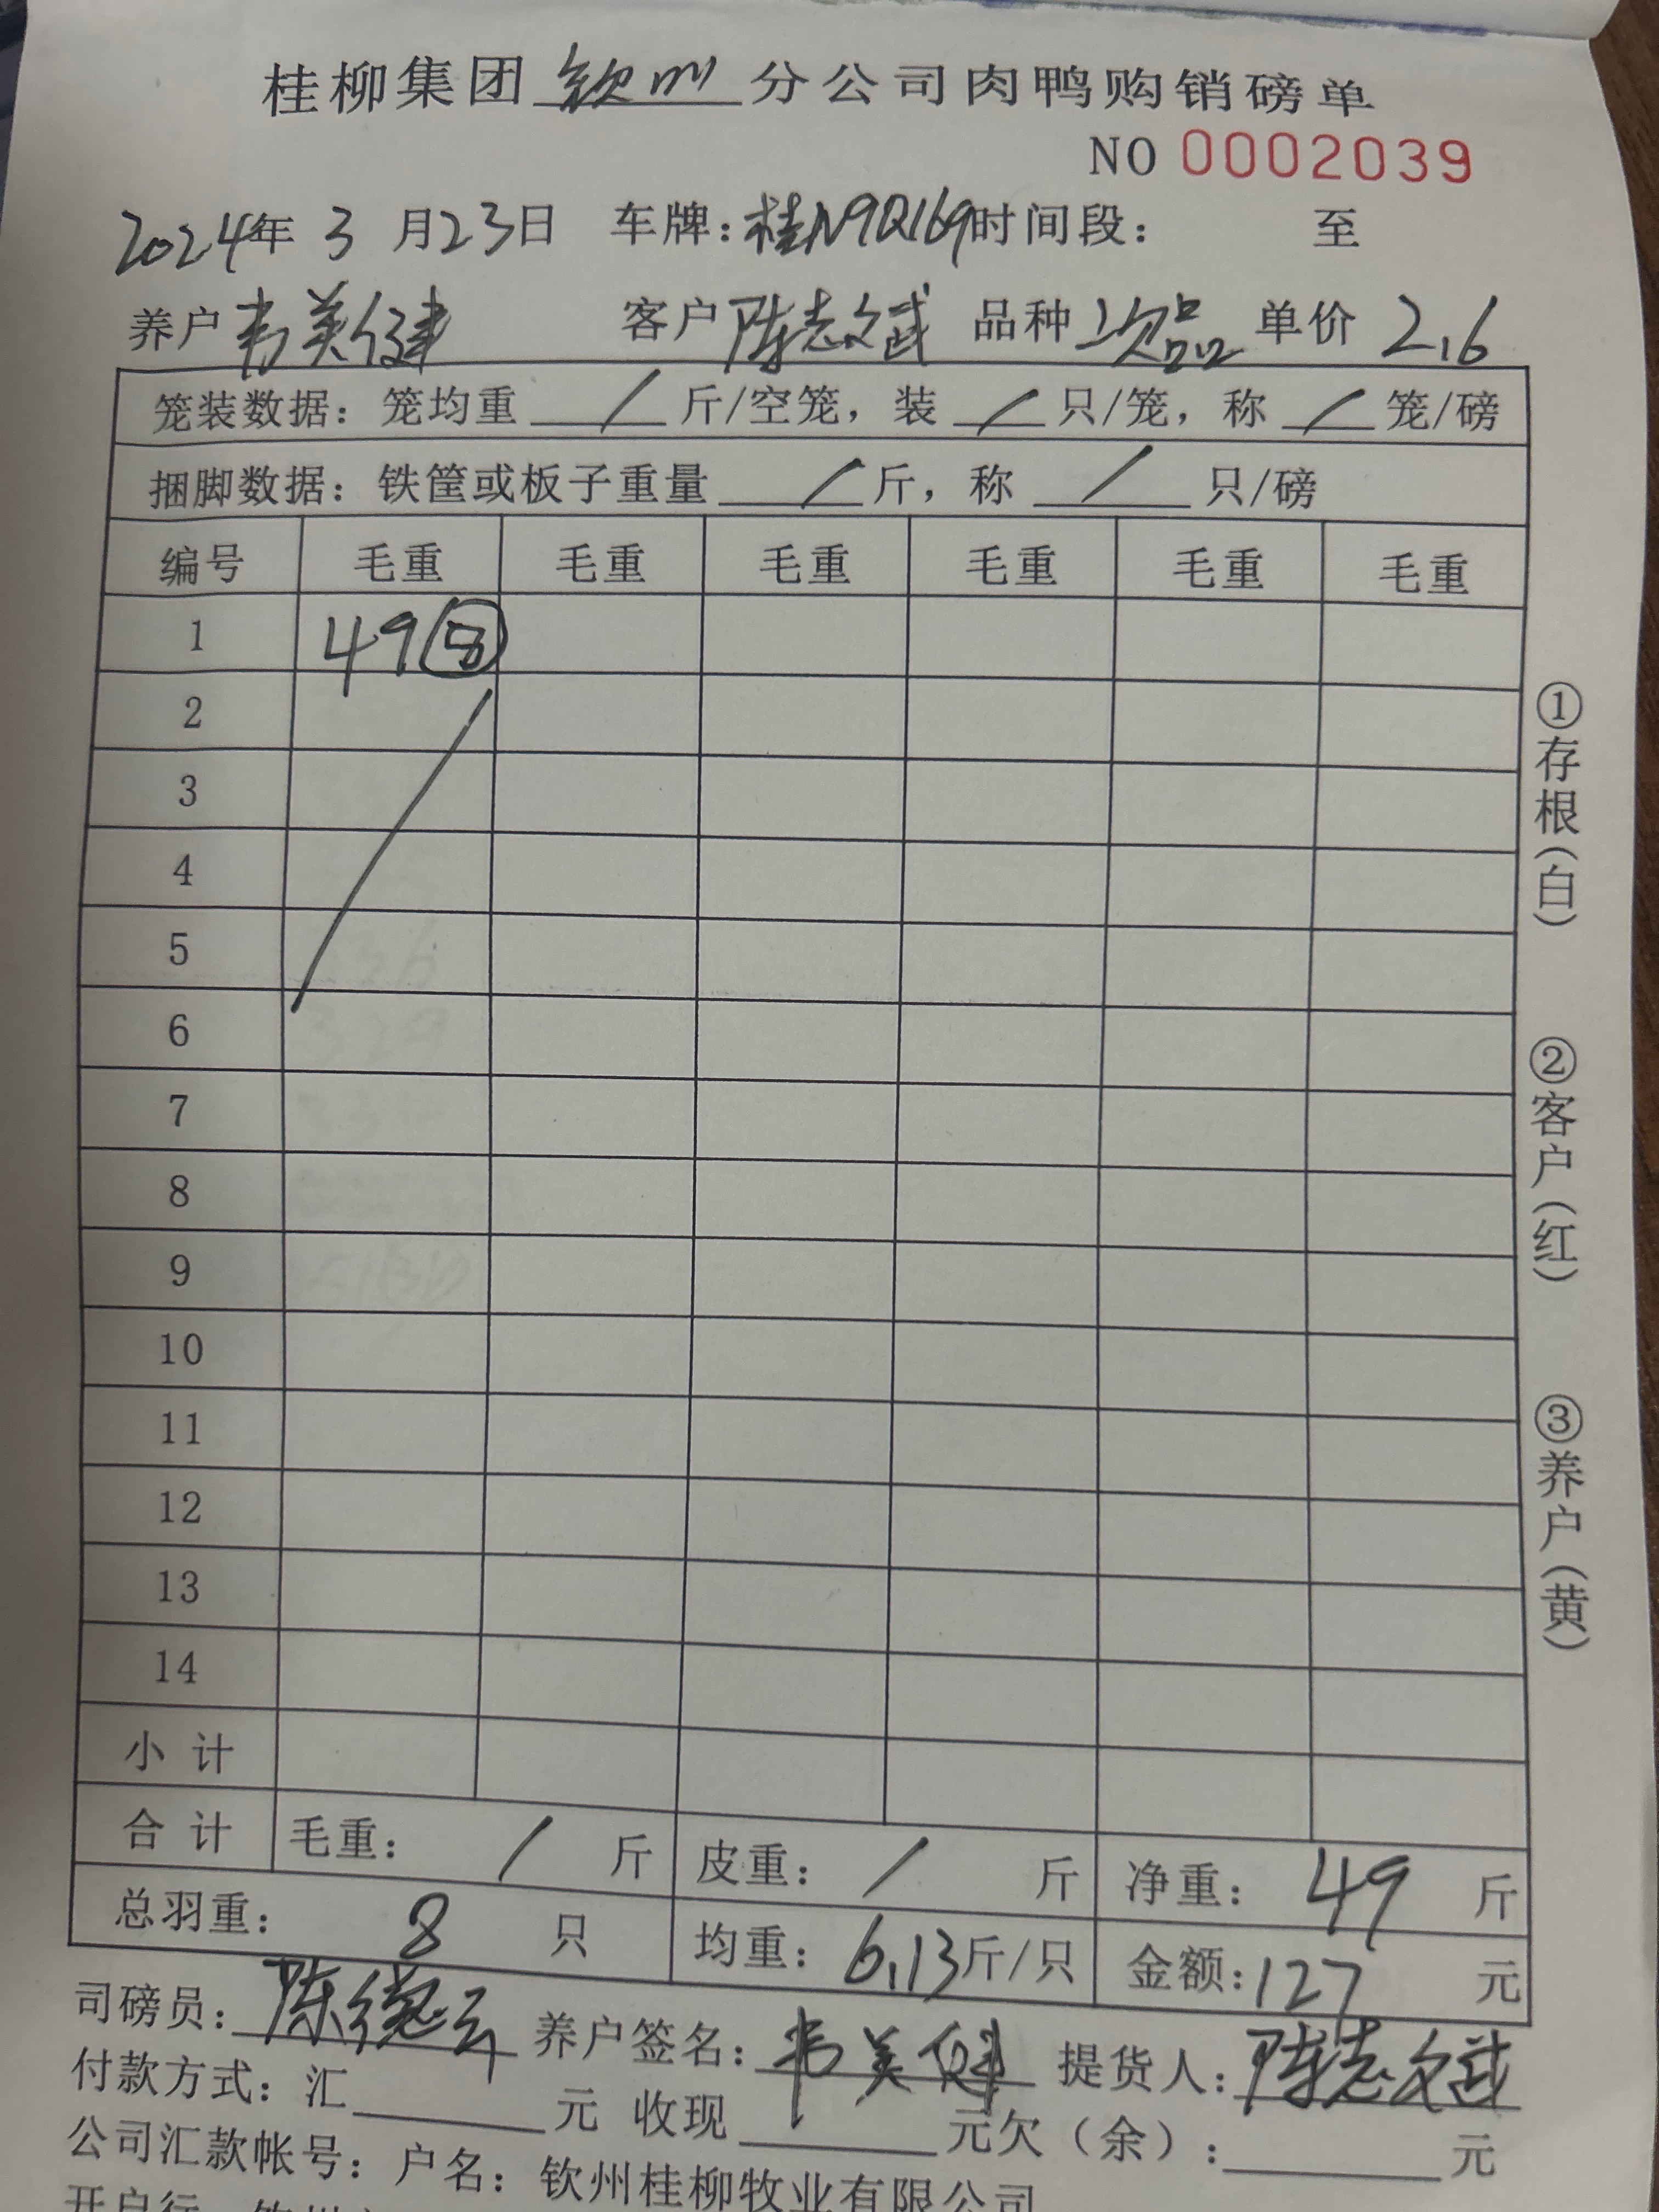 桂柳集团 钦州 分公司肉鸭购销磅单
NO 0002039
2024年 3 月23日 车牌：桂N9Q169 时间段： 至
养户 韦美健 客户 陈志斌 品种 次品 单价 2.6
笼装数据：笼均重 / 斤/空笼，装 / 只/笼，称 / 笼/磅
捆脚数据：铁筐或板子重量 / 斤，称 / 只/磅
编号 毛重 毛重 毛重 毛重 毛重 毛重
1 49 ⑧
2
3
4
5
6
7
8
9
10
11
12
13
14
小 计
合 计 毛重： / 斤 皮重： / 斤 净重： 49 斤
总羽重： 8 只 均重： 6.13 斤/只 金额：127 元
司磅员：陈德云 养户签名：韦美健 提货人：陈志斌
付款方式：汇 元 收现 元欠（余）： 元
公司汇款帐号：户名：钦州桂柳牧业有限公司
①存根（白）
②客户（红）
③养户（黄）